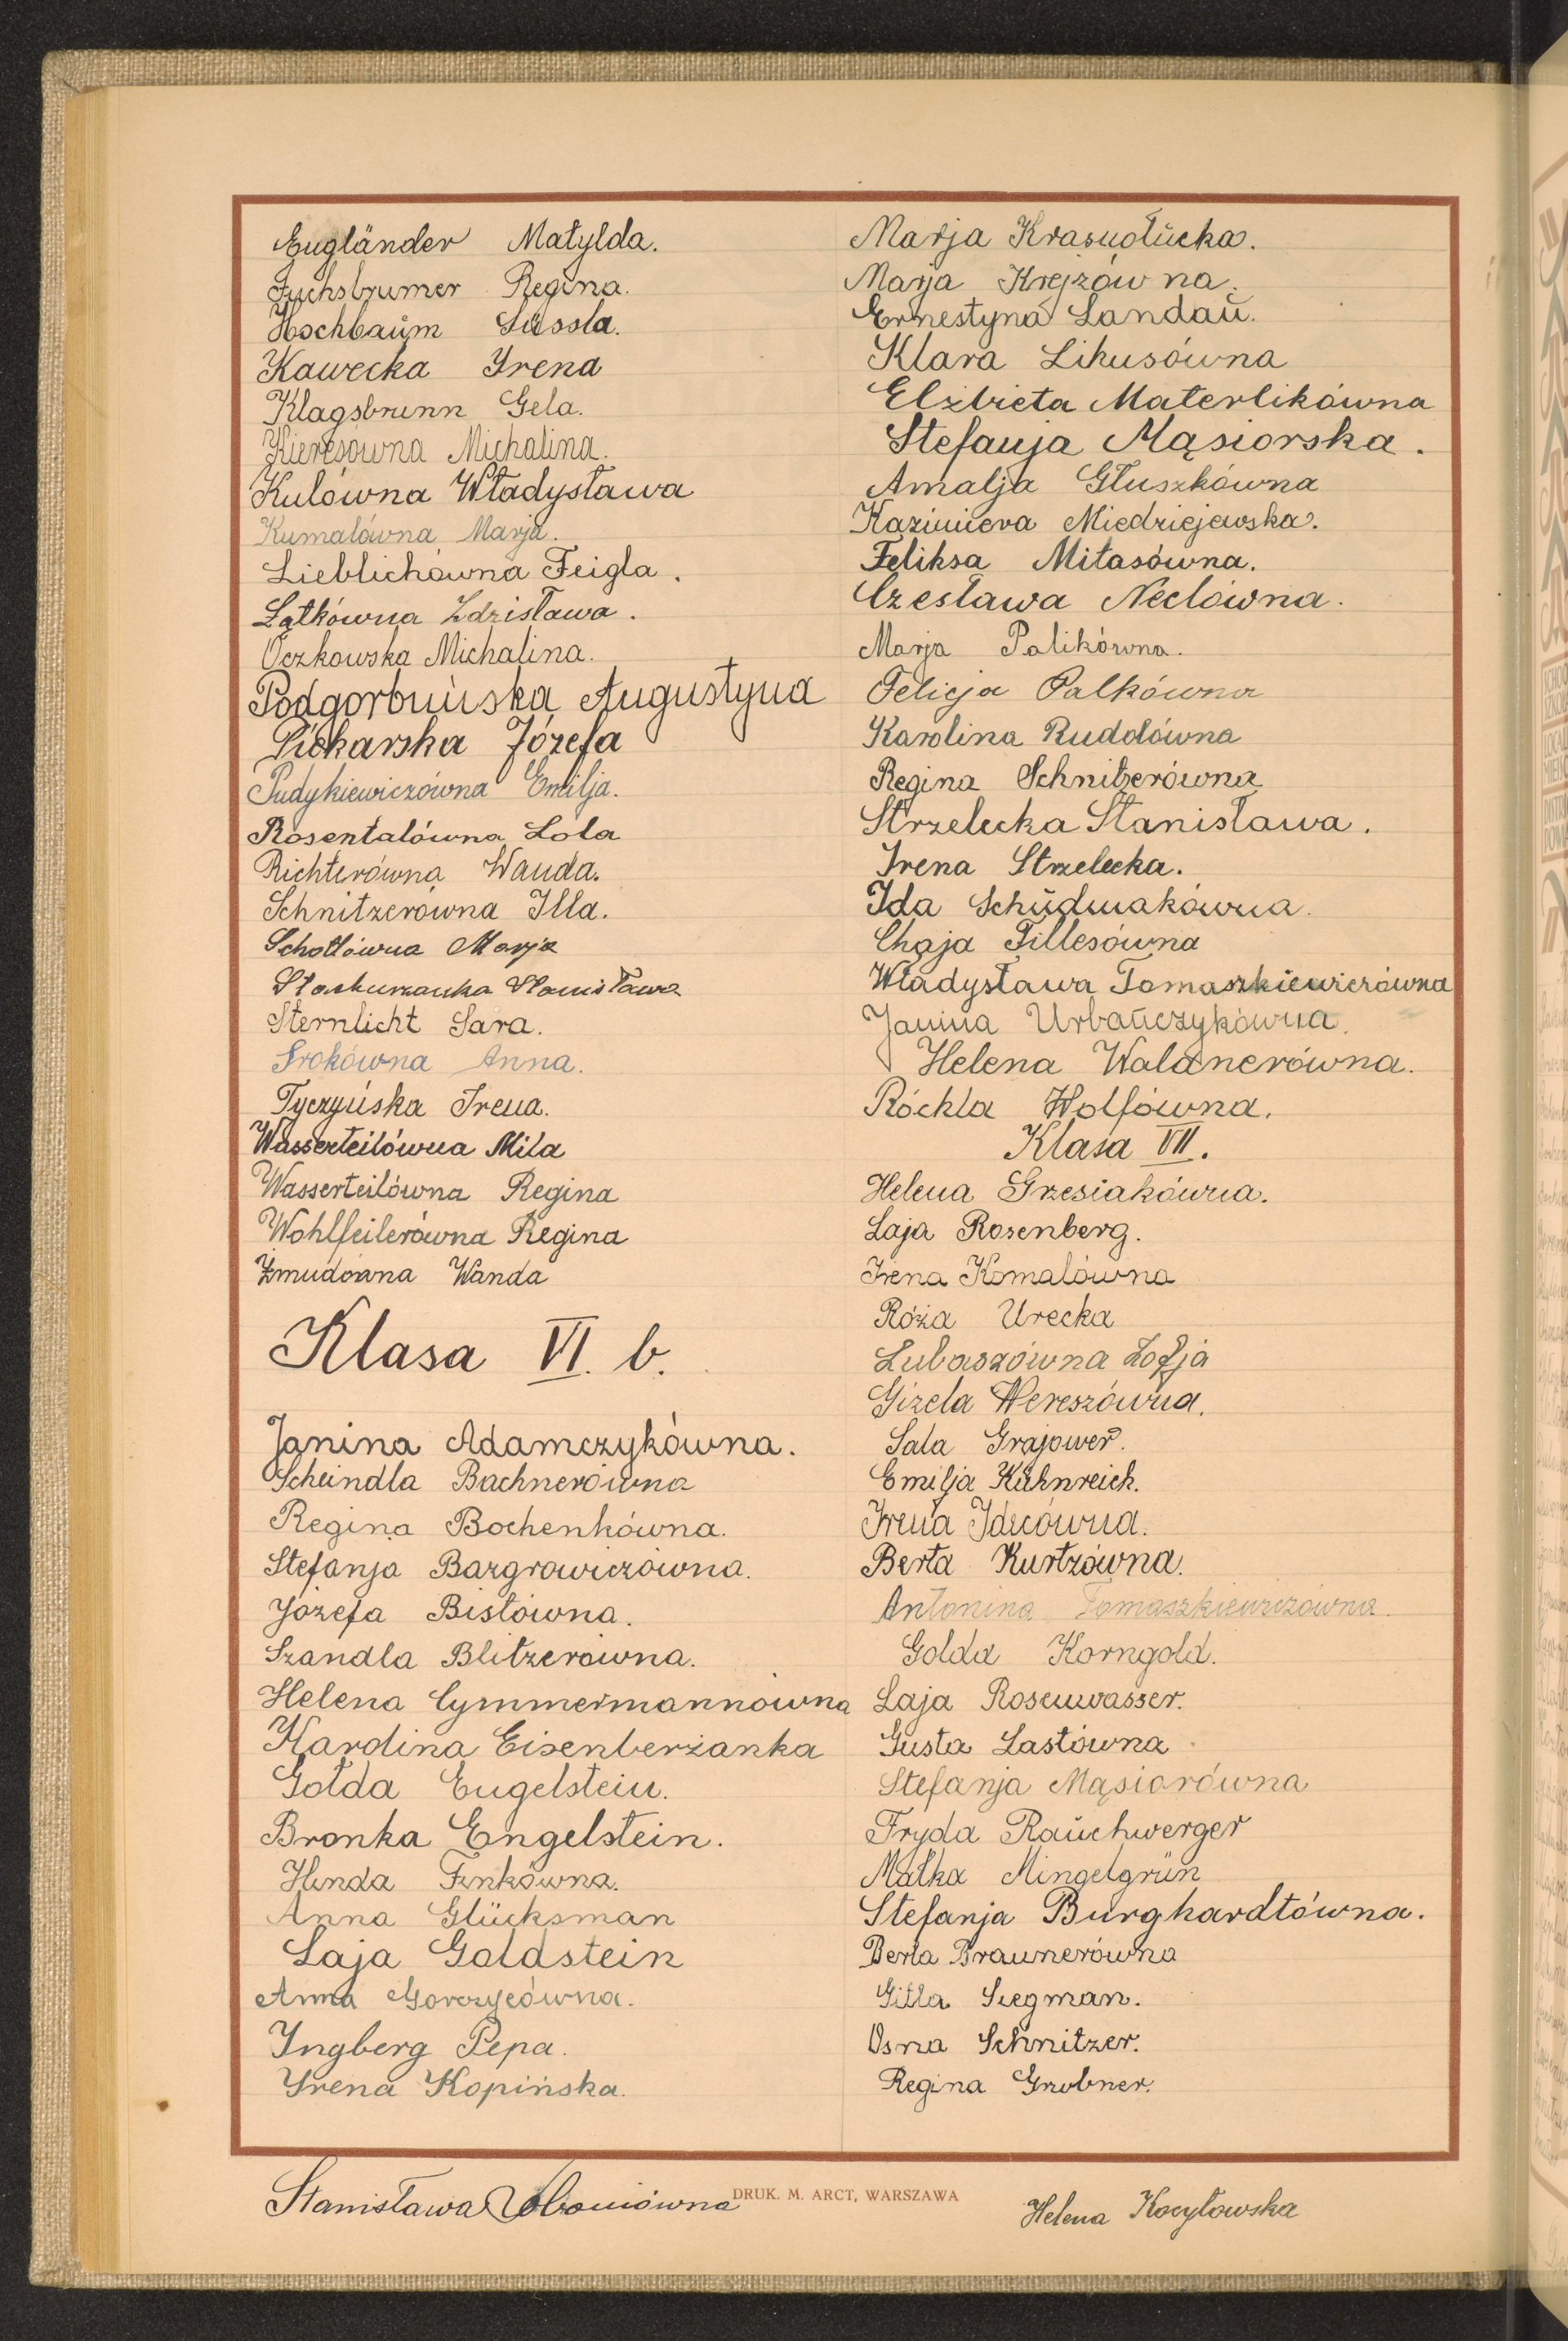 Engländer Matylda.
Fuchsbrumer Regina.
Hochbaum Süssla.
Kawecka Yrena
Klagsbrunn Gela.
Kieresówna Michalina.
Kulówna Władysława
Kumalówna Marja.
Lieblichówna Feigla.
Łątkówna Zdzisława.
Oczkowska Michalina.
Augustyna
Piekarska Józefa
Pudykiewiczówna Emilja.
Rosentalówna Lola
Richterówna Wanda.
Schnitzerówna Illa.
Schottówna Marja
Stachurzanka Stanisława
Sternlicht Sara.
Srokówna Anna.
Tyczyńska Irena.
Wasserteilówna Mila
Wasserteilówna Regina
Wohlfeilerówna Regina
Żmudówna Wanda
Klasa VI. b.
Janina Adamczykówna.
Scheindla Bachnerówna
Regina Bochenkówna.
Stefanja Bazgrowiczówna.
Józefa Bistówna.
Szandla Blitzerówna.
Helena Cymmermannówna
Karolina Eisenberżanka
Gołda Engelstein.
Bronka Engelstein.
Hinda Finkówna.
Anna Glücksman
Laja Goldstein
Anna Gorczycówna.
Yngberg Pepa.
Yrena Kopińska.
Marja Krasnołucka.
Marja Krejzówna.
Ernestyna Landau.
Klara Likusówna
Elżbieta Materlikówna
Stefanja Mąsiorska.
Amalja Głuszkówna
Kazimiera Miedziejewska.
Feliksa Miłasówna.
Czesława Neclówna.
Marja Palikówna.
Felicja Palkówna
Karolina Rudolówna
Regina Schnitzerówna
Strzelecka Stanisława.
Irena Strzelecka.
Ida Schüdmakówna.
Chaja Tillesówna
Władysława Tomaszkiewiczówna
Janina Urbańczykówna.
Helena Waldnerówna.
Róchla Wolfówna.
Klasa VII.
Helena Grzesiakówna.
Laja Rosenberg.
Irena Komalówna
Róża Urecka
Lubaszówna Zofja
Gizela Wereszówna.
Sala Grajower.
Emilja Kühnreich.
Irena Idzcówna.
Berta Kurtzówna.
Antonina Tomaszkiewiczówna.
Golda Korngold.
Laja Rosenwasser.
Gusta Lastówna
Stefanja Mąsiorówna
Fryda Rauchwerger
Małka Mingelgrün
Stefanja Burghardtówna.
Berta Braunerówna
Gitla Siegman.
Osna Schnitzer.
Regina Grubner.
Stanisława
DRUK. M. ARCT, WARSZAWA
Helena Kocyłowska